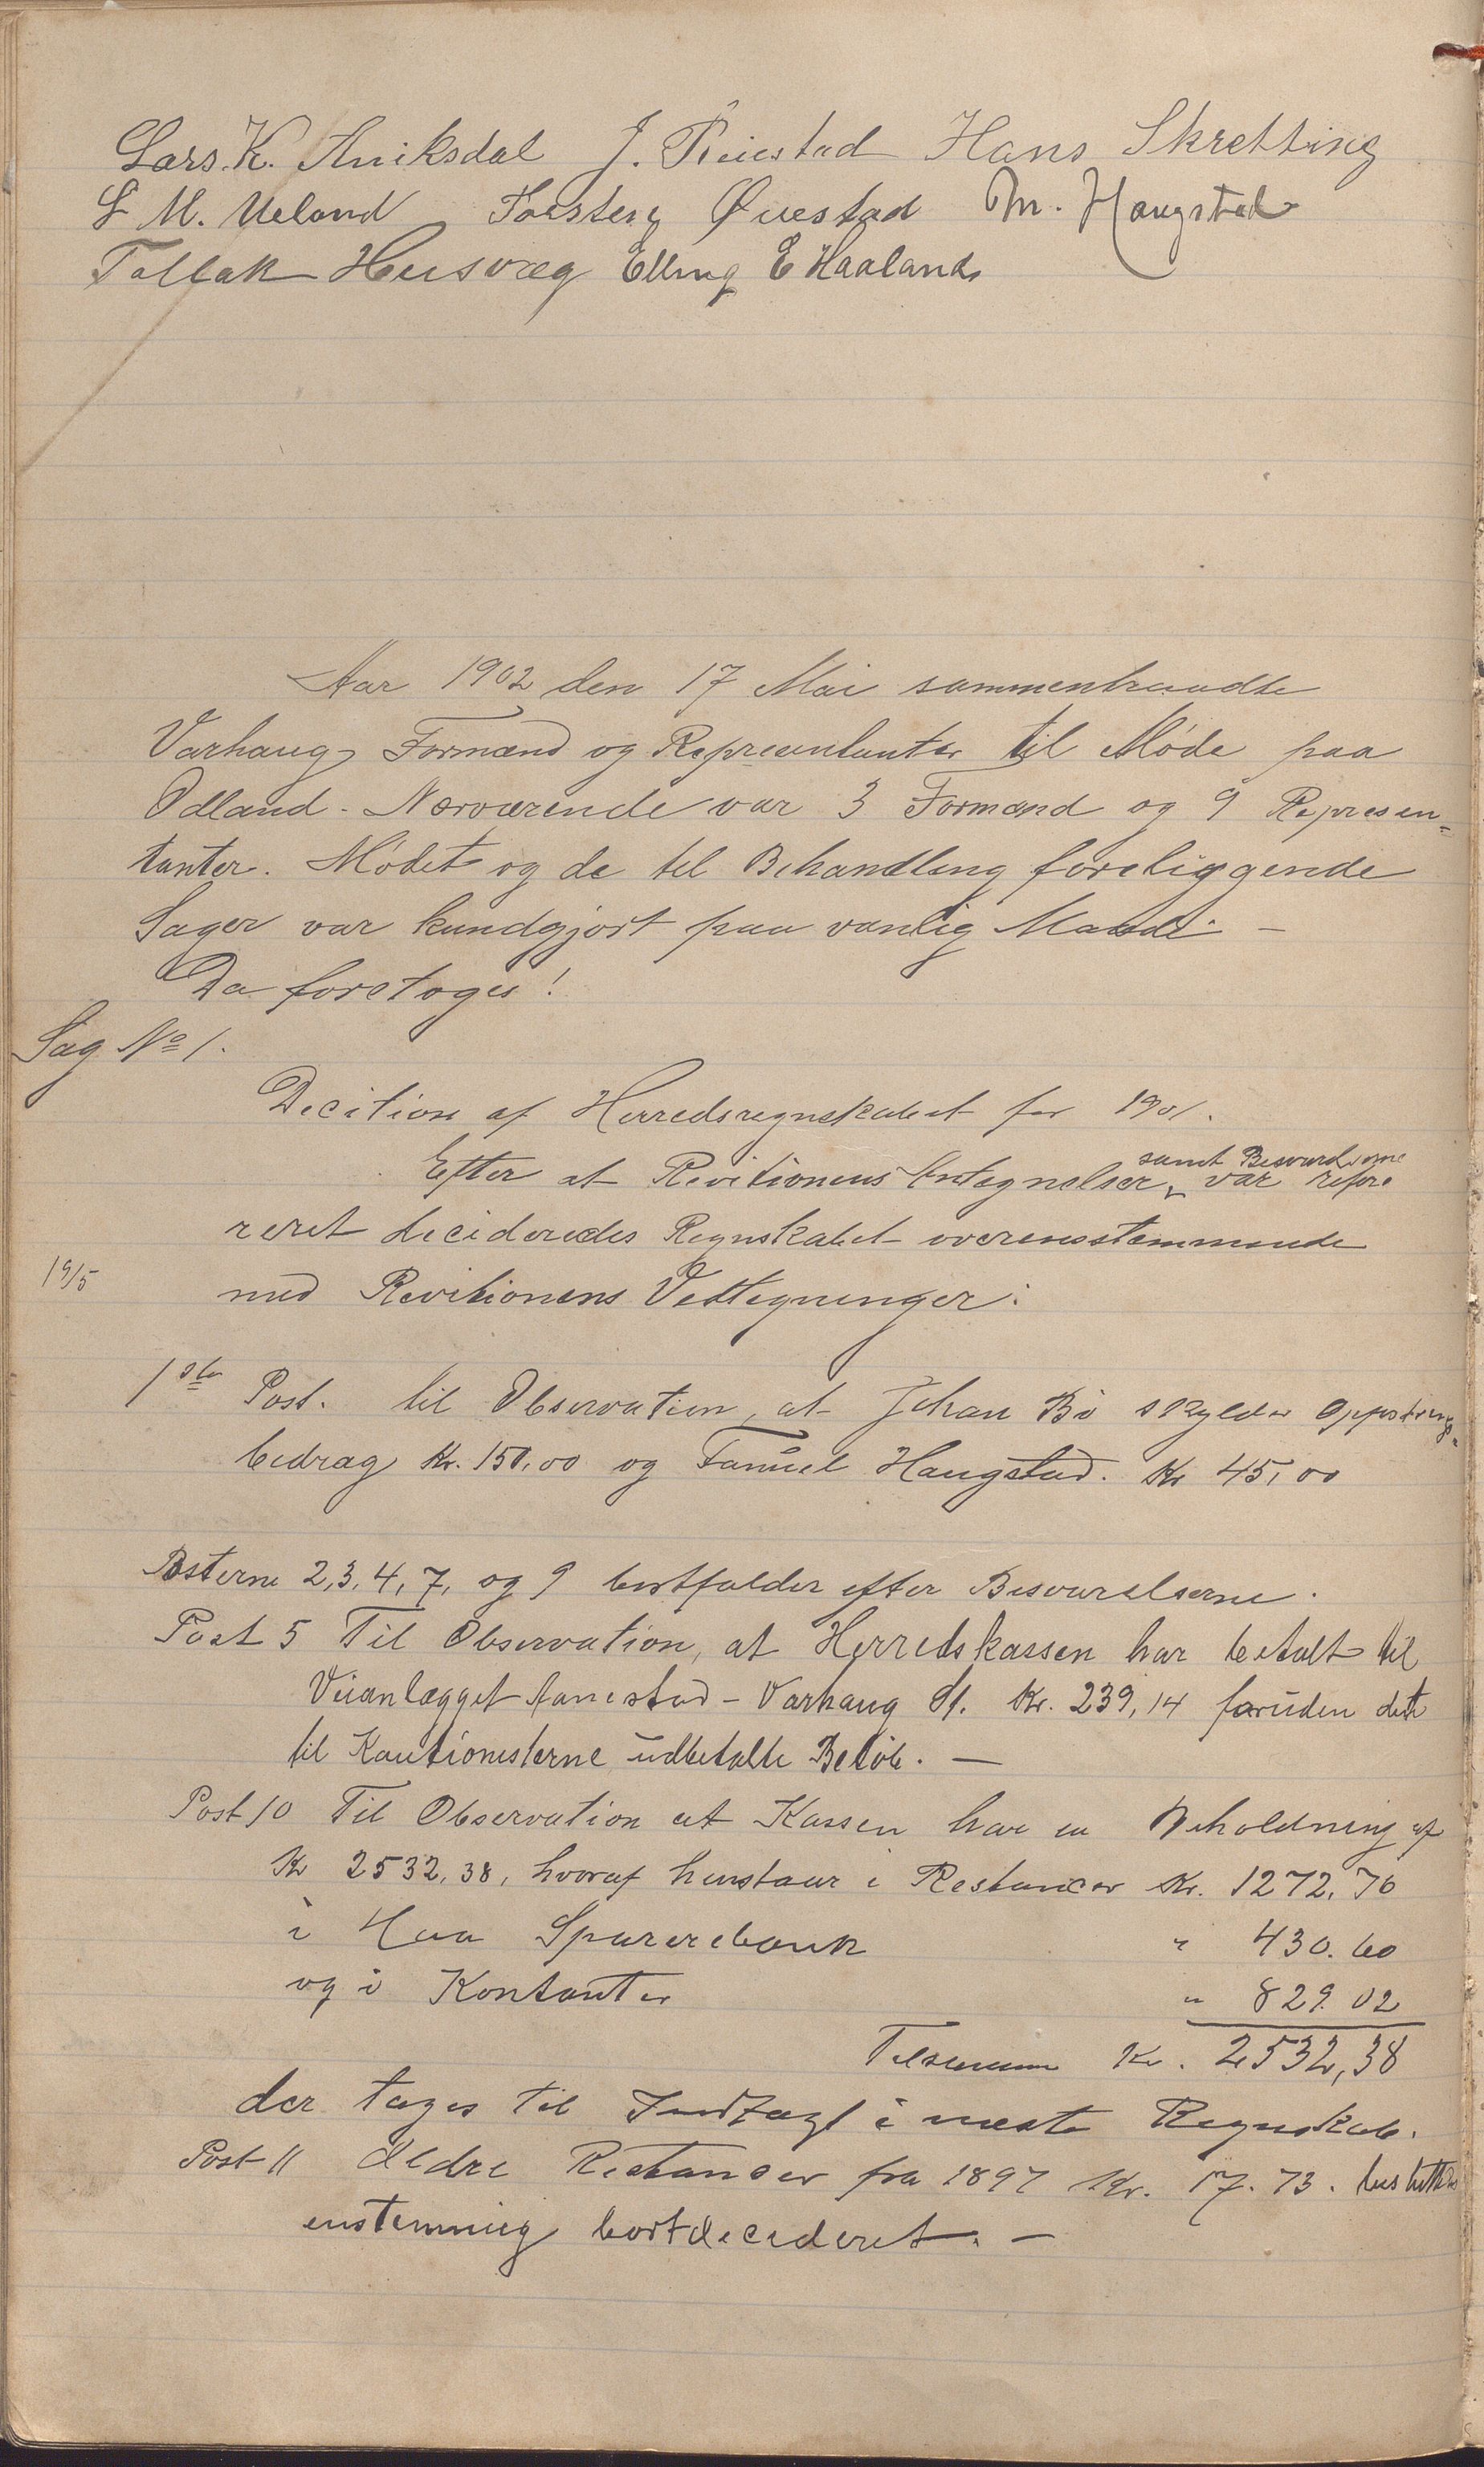 Lars. K. Aniksdal J. Reiestad Hans Skretting
L M. Ueland Torsten Questad M. Haugstad
Tollak Husvæg Elling E Haaland
Aar 1902 den 17 Mai sammentraadte
Varhaug Formænd og Representanter til Møde paa
Odland. Nærværende var 3 Formænd og 9 Represen-
tanter. Mødet og de til Behandling foreliggende
Sager var kundgjort paa vanlig Maade. -
Da foretoges!
Sag No 1.
Decition af Herredsregnskabet for 1901.
samt Besvarelserne
Efter at Revitionens Antegnelser var refere
reret decideredes Regnskabet overensstemmende
19/5
med Revitionens Vedtegninger:
1ste Post. til Observation, at Johan Bø skylder Opfostrings-
bedrag Kr. 150,00 og Samuel Haugstad. Kr 45,00
Posterne 2,3,4,7, og 9 bortfalder efter Besvarelserne.
Post 5 Til Observation, at Herredskassen har betalt til
Veianlægget Aanestad - Varhaug St. Kr. 239,14 foruden det
til Kautionisterne udbetalte Beløb. -
Post 10 Til Observation at Kassen har en Beholdning af
Kr 2532,38, hvoraf henstaar i Restancer Kr. 1272,76
i Haa Sparerebank " 430.60
og i Kontanter " 829.02
Tilsammen Kr. 2532,38
der tages til Indtægt i næste Regnskab.
Post 11 Ældre Restancer fra 1897 Kr. 17.73. besluttedes
enstemmig bortdecideret. -